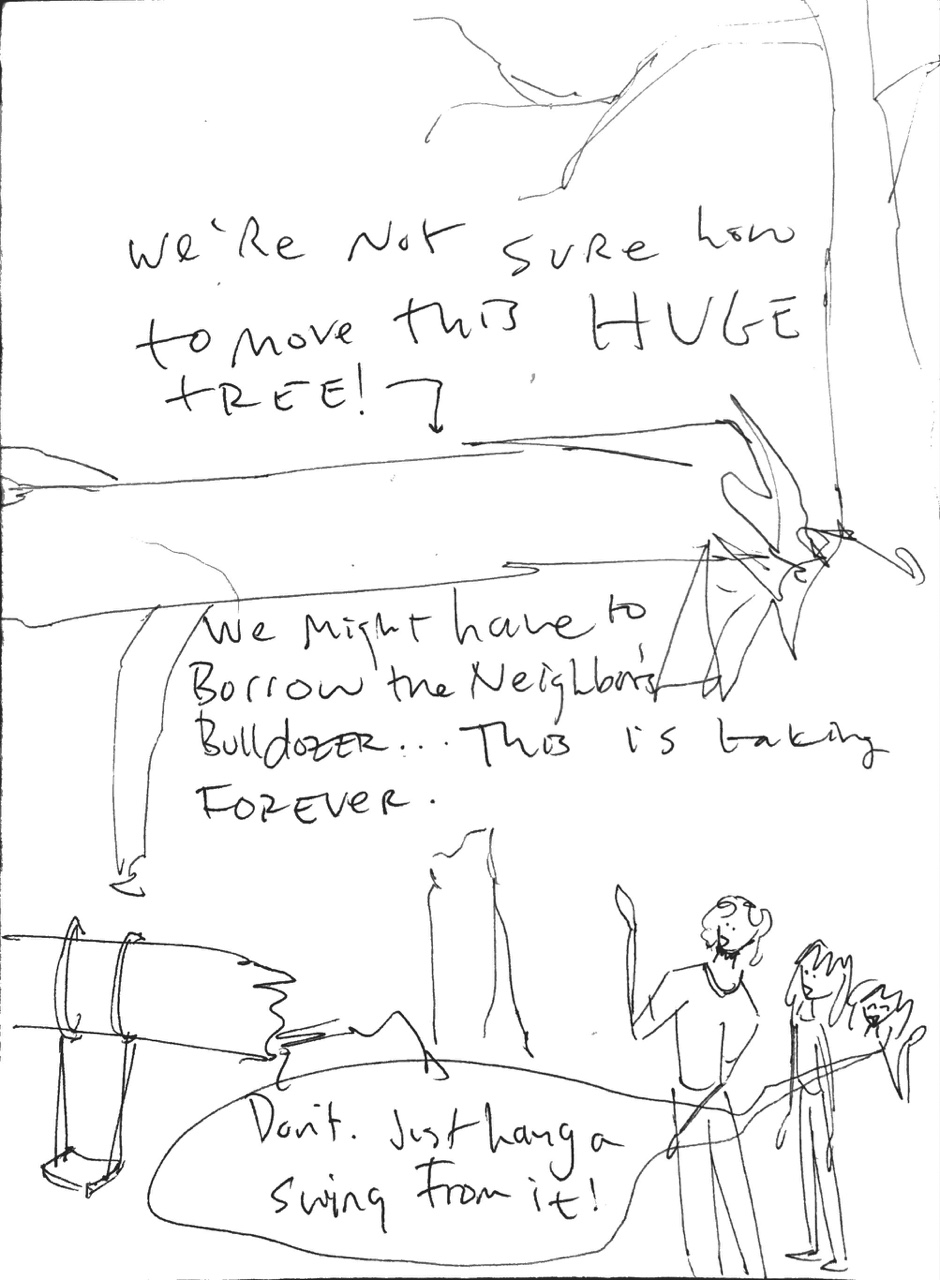 We're Not SURe how
to move this HUGE
tREE!
We Might have to
Borrow the Neighbor's
BulldozER... This is taking
FOREVER.
Don't. Just hang a
swing From it!